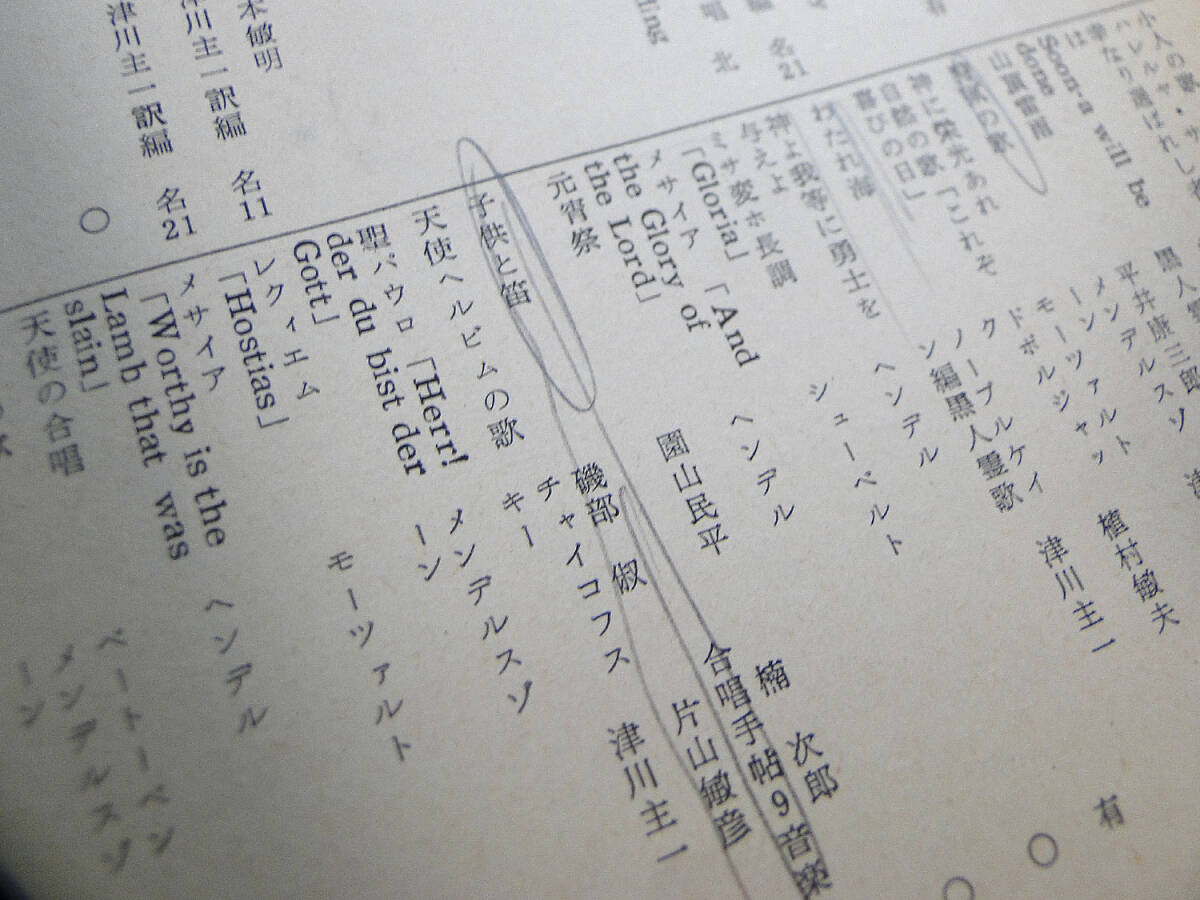 小人の歌
ハレルヤ・
幸なり選ばれし
は
Soon-a will be
done
山頂雷雨
の歌
神に栄光あれ「これぞ
自然の歌
喜びの日」
わだれ海
神よ我等に勇士を
与えよ
ミサ変ホ長調
「Gloria」「And
メサイア
the Glory of
the Lord」
元宵祭
子供と笛
天使ヘルビムの歌
聖パウロ「Herr!
der du bist der
Gott」
レクィエム
「Hostias」
メサイア
「Worthy is the
Lamb that was
slain」
天使の合唱
平井康三郎
メンデルスゾ
ーン
モーツァルト
ドボルジャック
ノーブルケイ
ン編黒人霊歌
ヘンデル
シューベルト
ヘンデル
園山民平
磯部 俶
チャイコフス
キー
メンデルスゾ
ーン
モーツァルト
ヘンデル
ベートーベン
メンデルスゾ
ーン
植村敏夫
津川主一
楠 次郎
合唱手帖9音楽
片山敏彦
津川主一
有
○
○
有
唱 北
名21
敏明
津川主一訳編 名11
津川主一訳編 名21
○